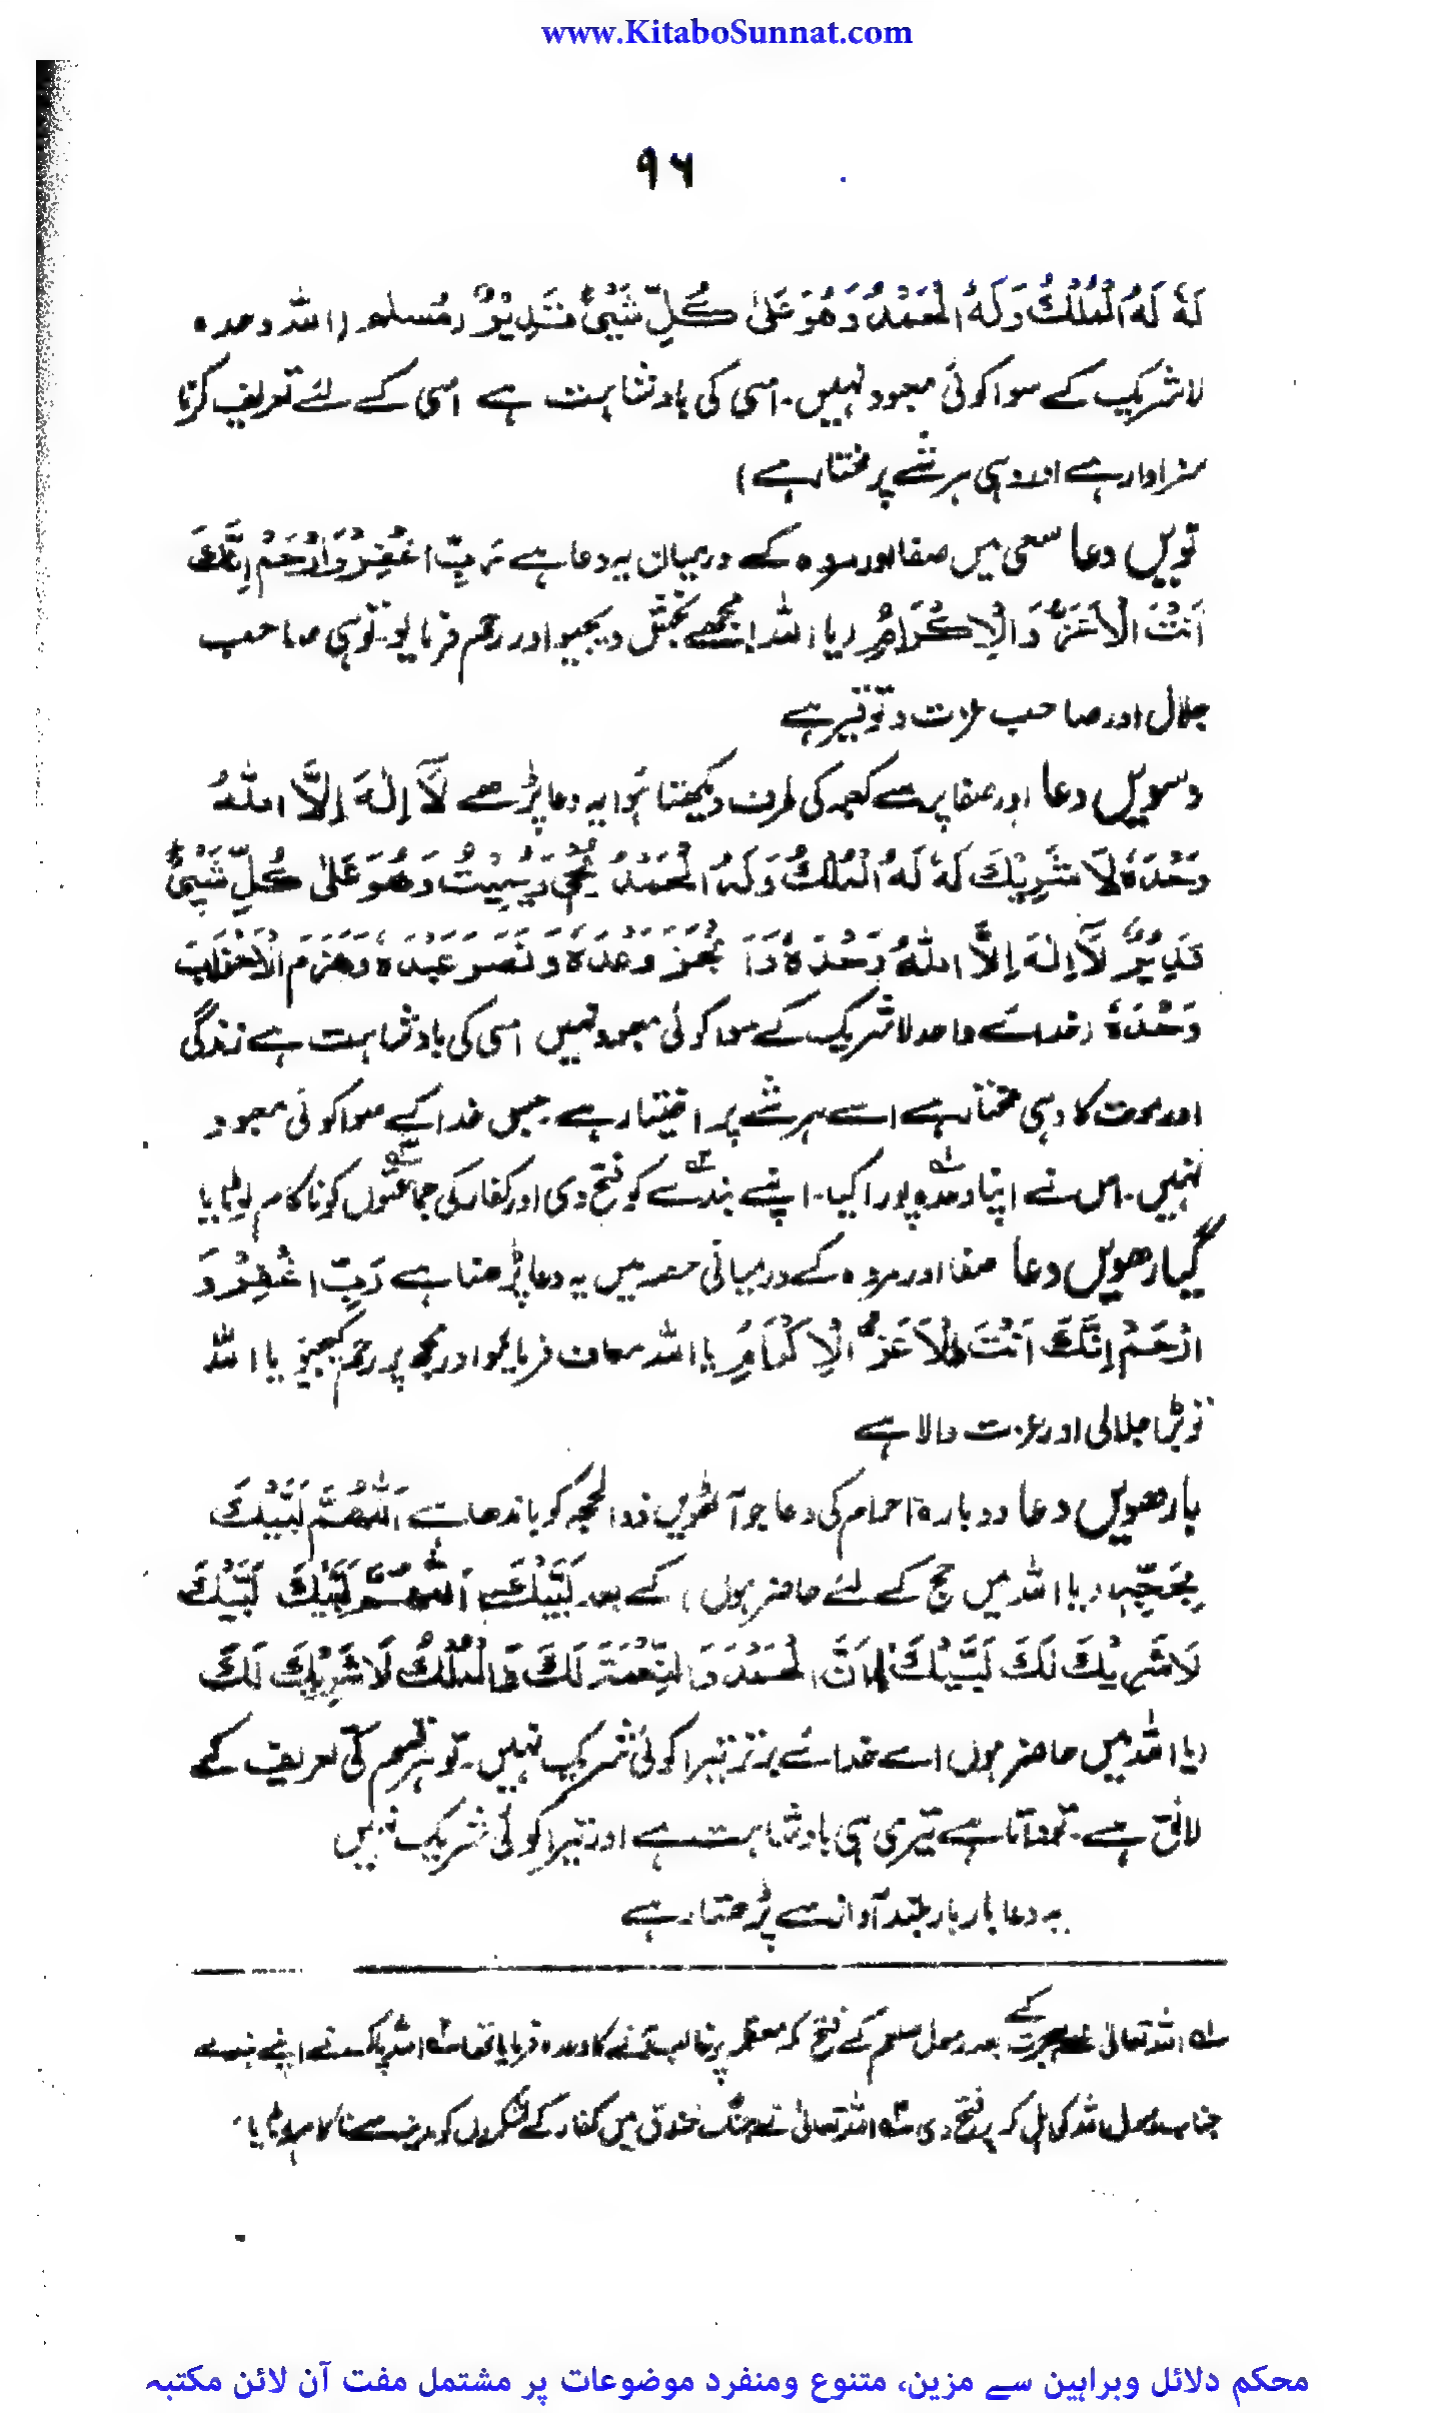 www.KitaboSunnat.com
۹۶
لَهٗ لَهُ الْمُلْكُ وَلَهُ الْحَمْدُ وَهُوَ عَلٰى كُلِّ شَيْئٍ قَدِيْرٌ (مُسلم) (اللہ وحدہ
لاشریک کے سوا کوئی معبود نہیں۔ اسی کی بادشاہت ہے اسی کے لئے تعریف کرنا
سزاوار ہے اور وہی ہر شے پر مختار ہے)
نویں دعا سعی میں صفا اور مروہ کے درمیان یہ دعا ہے رَبِّ اغْفِرْ وَارْحَمْ اِنَّكَ
اَنْتَ الْاَعَزُّ وَالْاِكْرَامُ (یا اللہ مجھے بخش دیجیو اور رحم فرمائیو تو ہی صاحب
جلال اور صاحب عزت و توقیر ہے
دسویں دعا اور صفا پر سے کعبہ کی طرف دیکھتا ہُوا یہ دعا پڑھے لَآ اِلٰهَ اِلَّا اللهُ
وَحْدَهٗ لَا شَرِيْكَ لَهٗ لَهُ الْمُلْكُ وَلَهُ الْحَمْدُ يُحْيِ وَيُمِيْتُ وَهُوَ عَلٰى كُلِّ شَيْئٍ
قَدِيْرٌ لَآ اِلٰهَ اِلَّا اللهُ وَحْدَهٗ اَنْجَزَ وَعْدَهٗ وَنَصَرَ عَبْدَهٗ وَهَزَمَ الْاَحْزَابَ
وَحْدَهٗ (خدائے واحد لاشریک کے سوا کوئی معبود نہیں اسی کی بادشاہت ہے زندگی
اور موت کا وہی مختار ہے اسے ہر شے پر اختیار ہے۔ جس خدا کے سوا کوئی معبود
نہیں۔ اس نے اپنا وعدہ پورا کیا۔ اپنے بندے کو فتح دی اور کفار کی جماعتوں کو ناکام لوٹایا
گیارھویں دعا صفا اور مروہ کے درمیانی حصہ میں یہ دعا پڑھتا ہے رَبِّ اغْفِرْ وَ
ارْحَمْ اِنَّكَ اَنْتَ الْاَعَزُّ الْاِكْرَامُ یا اللہ معاف فرمائیو اور مجھ پر رحم کیجیو یا اللہ
تو بڑا جلالی اور عزت والا ہے
بارھویں دعا دوبارہ احرام کی دعا جو آٹھویں ذوالحجہ کو باندھا ہے اَللّٰهُمَّ لَبَّيْكَ
بِحَجَّةٍ (یا اللہ میں حج کے لئے حاضر ہوں) کے بعد لَبَّيْكَ اَللّٰهُمَّ لَبَّيْكَ لَبَّيْكَ
لَا شَرِيْكَ لَكَ لَبَّيْكَ اِنَّ الْحَمْدَ وَالنِّعْمَةَ لَكَ وَالْمُلْكُ لَا شَرِيْكَ لَكَ
(یا اللہ میں حاضر ہوں اے خدائے برتر تیرا کوئی شریک نہیں۔ تو ہر قسم کی تعریف کے
لائق ہے۔ تیری ہی بادشاہت ہے اور تیرا کوئی شریک نہیں
یہ دعا بار بار بلند آواز سے پڑھتا رہے
ـلـہ اللہ تعالیٰ نے ہجرت کے بعد رسول صلعم کے فتح مکہ معظمہ پر غالب آنے کا وعدہ فرمایا تھا اللہ پاک نے اپنے بندے
جناب رسول اللہ کی اہل مکہ پر فتح دی اللہ تعالیٰ نے جنگ خندق میں کفار کے لشکروں کو مدینہ سے ناکام لوٹایا۔
محکم دلائل وبراہین سے مزین، متنوع ومنفرد موضوعات پر مشتمل مفت آن لائن مکتبہ